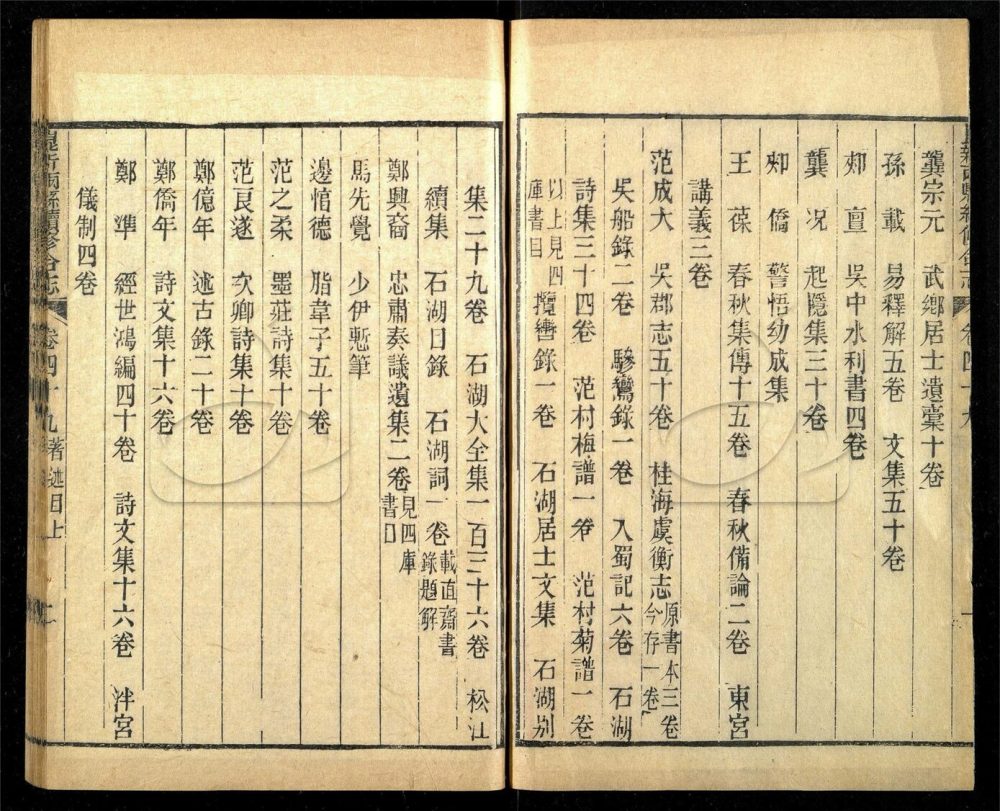 龔宗元　武鄉居士遺稾十卷
孫　載　易釋解五卷　文集五十卷
郟　亶　吳中水利書四卷
龔　况　起隱集三十卷
郟　僑　警悟幼成集
王　葆　春秋集傳十五卷　春秋備論二卷　東宮
講義三卷
范成大　吳郡志五十卷　桂海虞衡志原書本三卷今存一卷
吳船錄二卷　驂鸞錄一卷　入蜀記六卷　石湖
詩集三十四卷　范村梅譜一卷　范村菊譜一卷
以上見四庫書目　攬轡錄一卷　石湖居士文集　石湖别
集二十九卷　石湖大全集一百三十六卷　松江
續集　石湖日錄　石湖詞一卷載直齋書錄題解
鄭興裔　忠肅奏議遺集二卷見四庫書目
馬先覺　少伊慙筆
邊惇德　脂韋子五十卷
范之柔　墨莊詩集十卷
范良遂　次卿詩集十卷
鄭億年　述古錄二十卷
鄭僑年　詩文集十六卷
鄭　準　經世鴻編四十卷　詩文集十六卷　泮宮
儀制四卷
崑新兩縣續修合志　卷四十九　著述目上　二